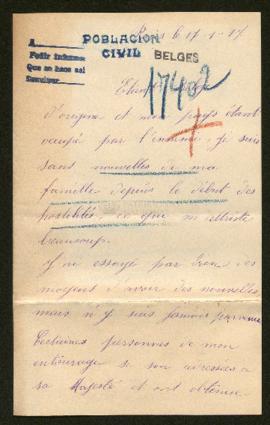 Paris le 17-1-17.
A
Pedir informe
Que se hace así
POBLACION
CIVIL
BELGES
17402
d'origine et mon pays étant
occupé par l'ennemi, je suis
sans nouvelles de ma
famille depuis le début des
hostilités, ce que m'attriste
beaucoup.
J'ai essayé par bien des
moyens d'avoir des nouvelles
mais n'y suis jamais parvenue
Certaines personnes de mon
entourage se son adressées à
sa Majesté et ont obtenu